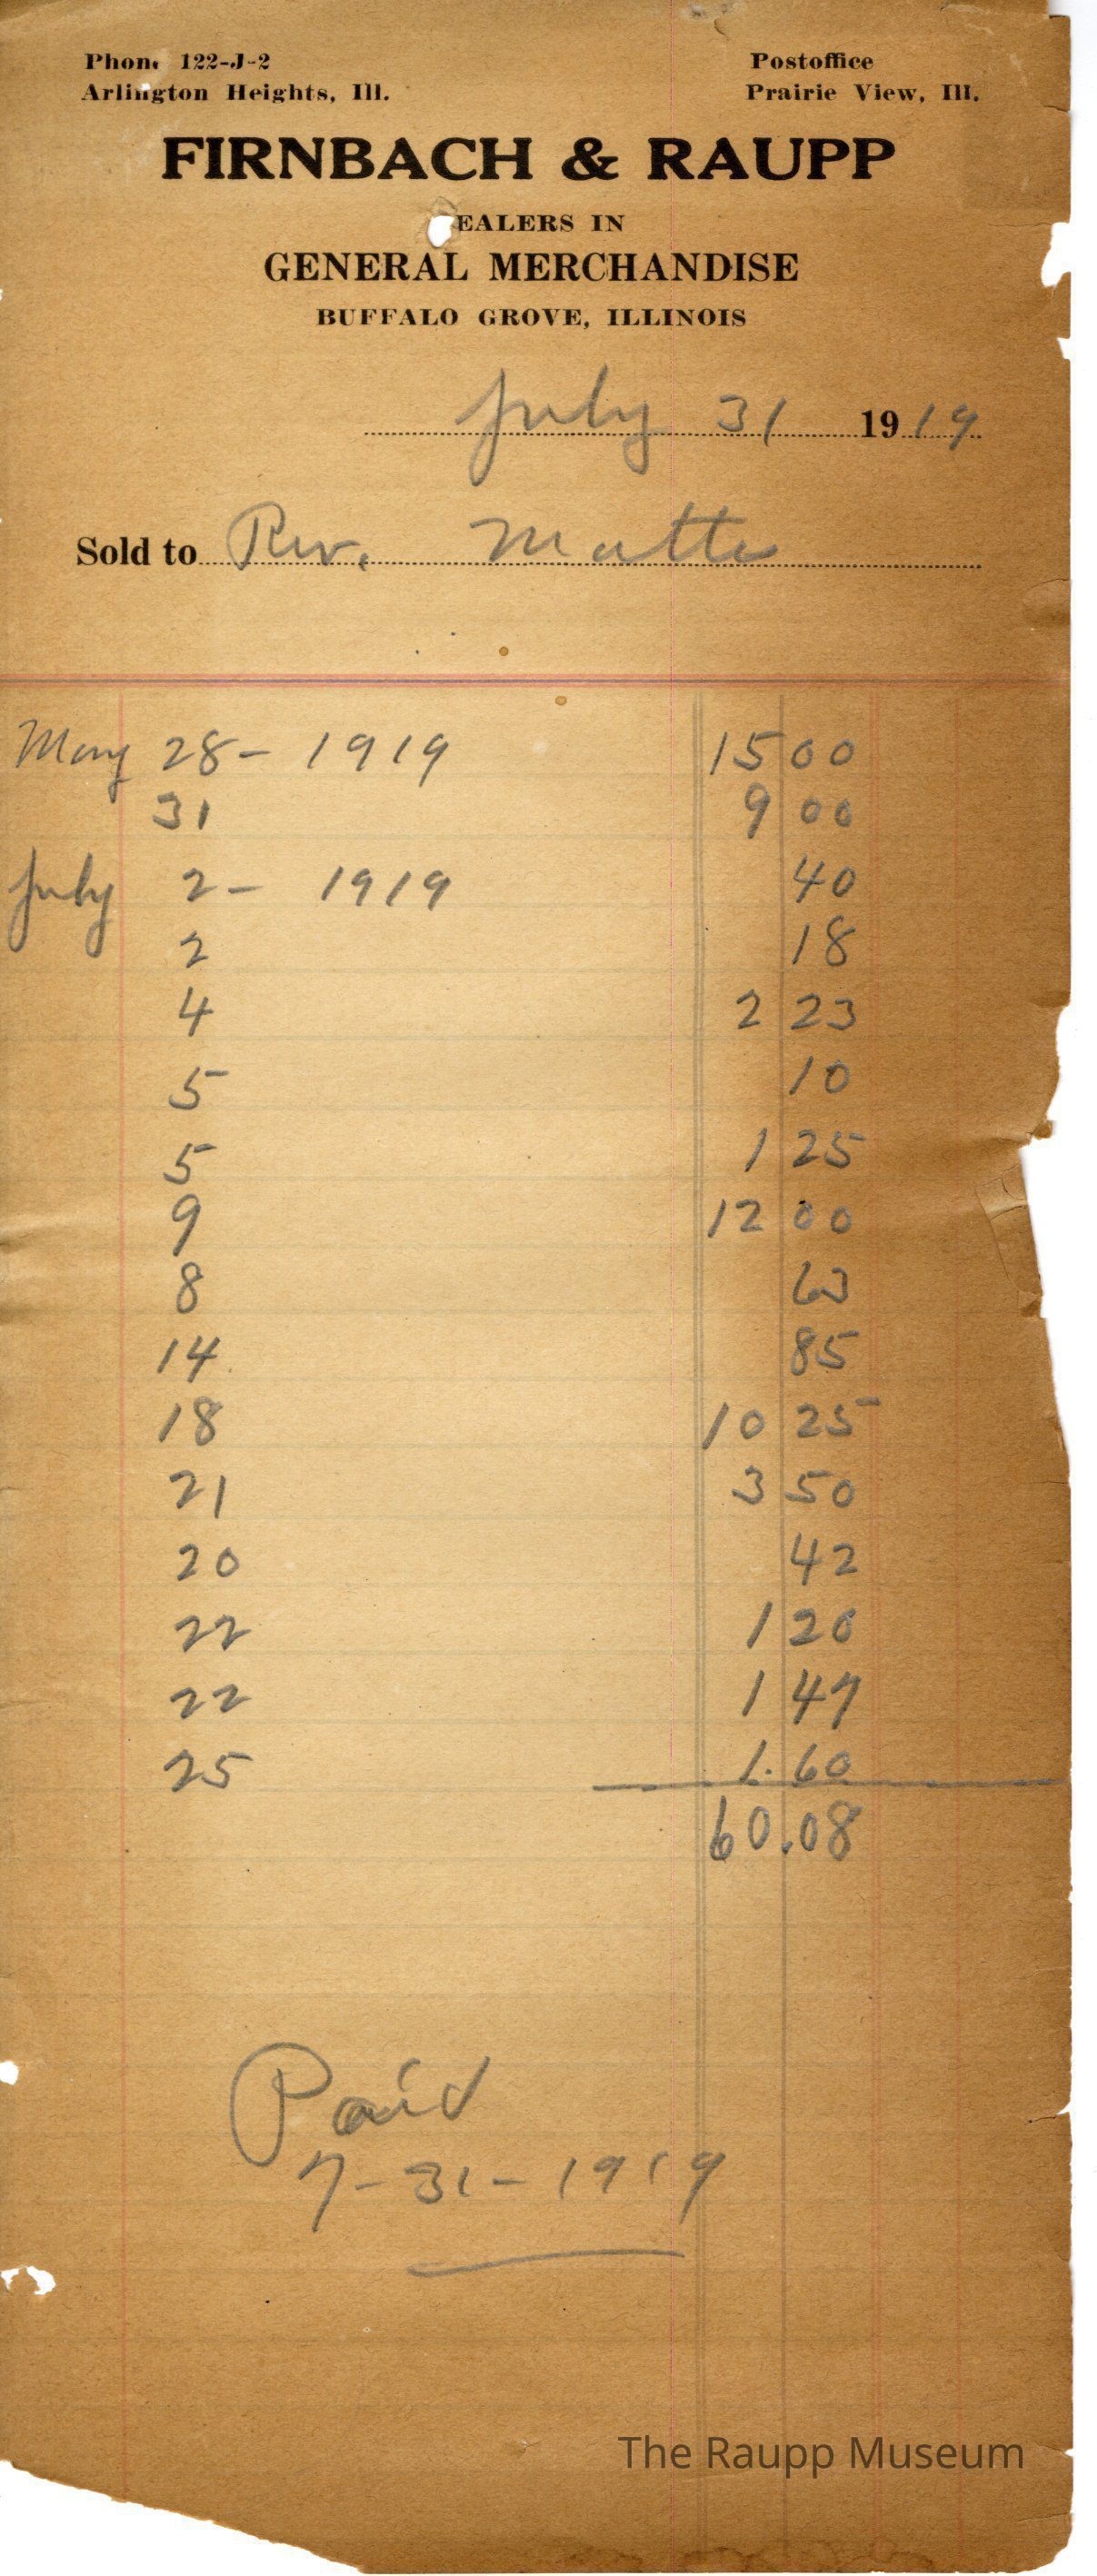 Phone 122-J-2 Postoffice
Arlington Heights, Ill. Prairie View, Ill.
FIRNBACH & RAUPP
EALERS IN
GENERAL MERCHANDISE
BUFFALO GROVE, ILLINOIS
July 31 1919
Sold to Rev. Matte
May 28 - 1919 15 00
31 9 00
July 2 - 1919 40
2 18
4 2 23
5 10
5 1 25
9 12 00
8 63
14 85
18 10 25
21 3 50
20 42
22 1 20
22 1 47
25 1.60
60.08
Paid
7-31-1919
The Raupp Museum